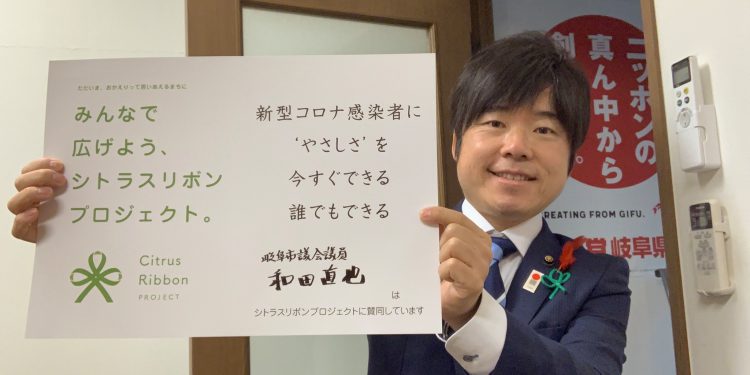 ただいま、おかえりって言いあえるまちに
みんなで
広げよう、
シトラスリボン
プロジェクト。
Citrus
Ribbon
PROJECT
新型コロナ感染者に
‘やさしさ’を
今すぐできる
誰でもできる
岐阜市議会議員
和田直也
は
シトラスリボンプロジェクトに賛同しています
ニッポンの
真ん中から
創
REATING FROM GIFU.
岐阜県